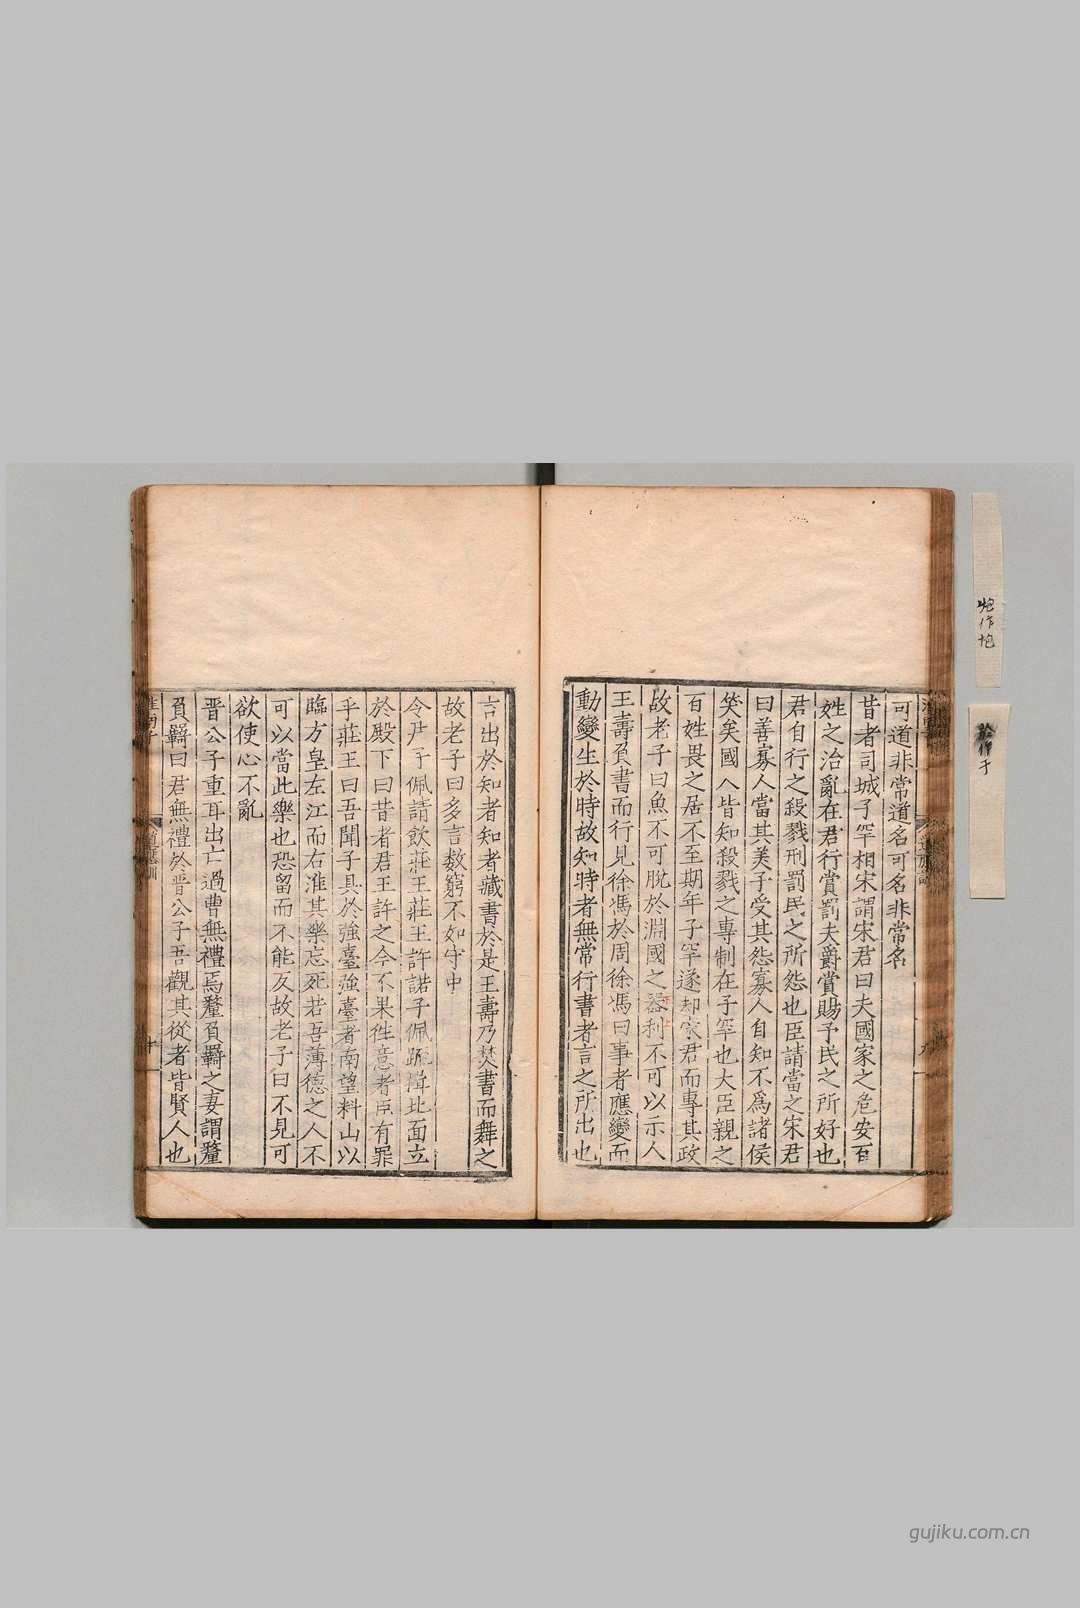 可道非常道名可名非常名
昔者司城子罕相宋謂宋君曰夫國家之危安百
姓之治亂在君行賞罰夫爵賞賜予民之所好也
君自行之殺戮刑罰民之所怨也臣請當之宋君
曰善寡人當其美子受其怨寡人自知不爲諸侯
笑矣國人皆知殺戮之專制在子罕也大臣親之
百姓畏之居不至期年子罕遂却宋君而專其政
故老子曰魚不可脫於淵國之器利不可以示人
下上
王壽負書而行見徐馮於周徐馮曰事者應變而
動變生於時故知時者無常行書者言之所出也
言出於知者知者藏書於是王壽乃焚書而舞之
故老子曰多言數窮不如守中
令尹子佩請飲莊王莊王許諾子佩䟽揖北面立
於殿下曰昔者君王許之今不果徃意者臣有罪
乎莊王曰吾聞子具於強臺強臺者南望料山以
臨方皇左江而右淮其樂忘死若吾薄德之人不
可以當此樂也恐留而不能反故老子曰不見可
欲使心不亂
晉公子重耳出亡過曹無禮焉釐負羈之妻謂釐
負羈曰君無禮於晉公子吾觀其從者皆賢人也
淮南子
道應訓
十
炮作炮
於作于
gujiku.com.cn